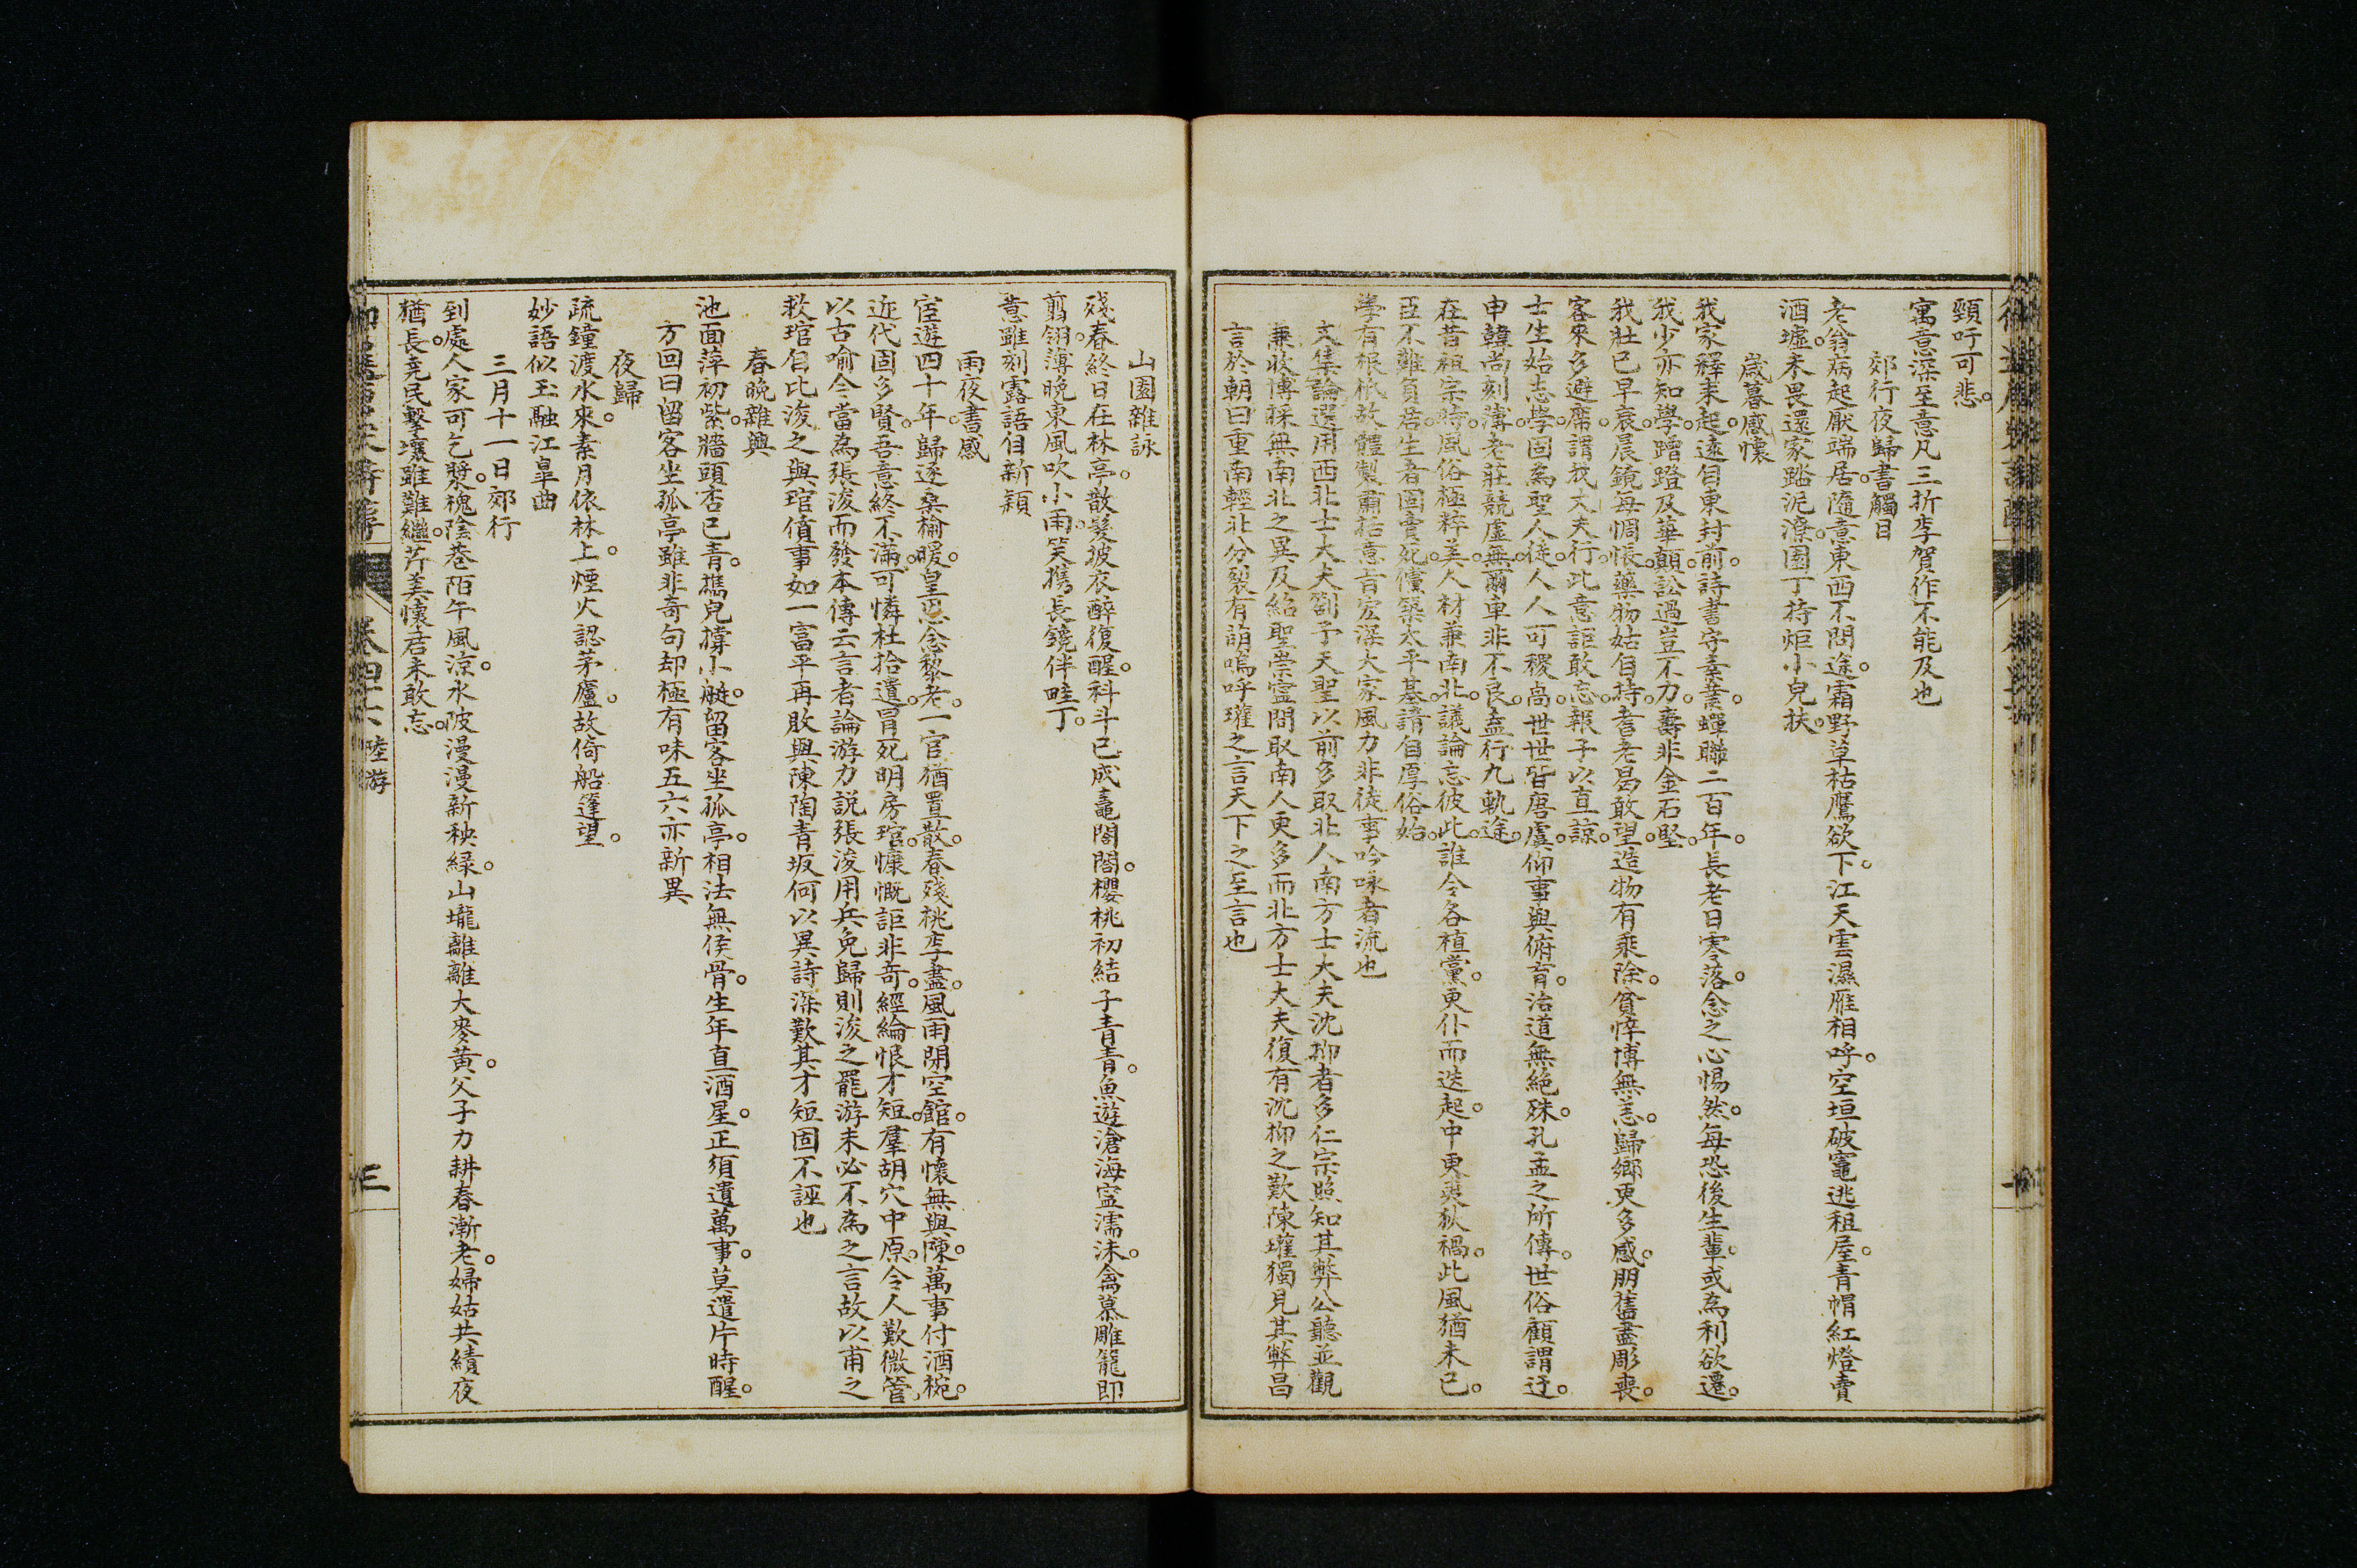 頸吁可悲。
寓意深至意凡三折李賀作不能及也
郊行夜歸書觸目
老翁病起厭端居。隨意東西不問途。霜野草枯鷹欲下。江天雲濕雁相呼。空垣破竈逃租屋。青帽紅燈賣
酒壚。未畏還家踏泥潦。園丁持炬小兒扶。
歲暮感懷
我家釋耒起。遠自東封前。詩書守素業。蟬聯二百年。長老日零落。念之心惕然。每恐後生輩。或為利欲遷。
我少亦知學。蹭蹬及華顛。訟過豈不力。壽非金石堅。
我壯已早衰。晨鏡每惆悵。藥物姑自持。耆老曷敢望。造物有乘除。貧悴博無恙。歸鄉更多感。朋舊盡彫喪。
客來多避席。謂我大夫行。此意詎敢忘。報子以直諒。
士生始志學。固為聖人徒。人人可稷卨。世世皆唐虞。仰事與俯育。治道無絕殊。孔孟之所傳。世俗顧謂迂。
申韓尚刻薄。老莊競虛無。爾車非不良。盍行九軌途。
在昔祖宗時。風俗極粹美。人材兼南北。議論忘彼此。誰令各植黨。更仆而迭起。中更夷狄禍。此風猶未已。
臣不難負君。生者固賣死。儻築太平基。請自厚俗始。
學有根柢故體製肅括意旨宏深大家風力非徒事吟咏者流也
文集論選用西北士大夫劄予天聖以前多取北人南方士大夫沈抑者多仁宗照知其弊公聽並觀
兼收博採無南北之異及紹聖崇寧間取南人更多而北方士大夫復有沈抑之歎陳瓘獨見其弊昌
言於朝曰重南輕北分裂有萌嗚呼瓘之言天下之至言也
山園雜詠
殘春終日在林亭。散髮披衣醉復醒。科斗已成鼃閤閤。櫻桃初結子青青。魚遊滄海寧濡沫。禽慕雕籠即
翦翎。薄晚東風吹小雨。笑攜長鑱伴畦丁。
意雖刻露語自新穎
雨夜書感
宦遊四十年。歸逐桑榆暖。皇恩念黎老。一官猶置散。春殘桃李盡。風雨閉空館。有懷無與陳。萬事付酒椀。
近代固多賢。吾意終不滿。可憐杜拾遺。冒死明房琯。慷慨詎非奇。經綸恨才短。羣胡穴中原。令人歎微管。
以古喻今當為張浚而發本傳云言者論游力說張浚用兵免歸則浚之罷游未必不為之言故以甫之
救琯自比浚之與琯僨事如一富平再敗與陳陶青坂何以異詩深歎其才短固不誣也
春晚雜興
池面萍初紫。牆頭杏已青。攜兒撐小艇。留客坐孤亭。相法無侯骨。生年直酒星。正須遺萬事。莫遣片時醒。
方回曰留客坐孤亭雖非奇句却極有味五六亦新異
夜歸
疏鐘渡水來。素月依林上。煙火認茅廬。故倚船篷望。
妙語似玉融江皐曲
三月十一日郊行
到處人家可乞漿。槐陰巷陌午風涼。水陂漫漫新秧綠。山壠離離大麥黃。父子力耕春漸老。婦姑共績夜
猶長。堯民擊壤雖難繼。芹美懷君未敢忘。
卷四十六 陸游
三